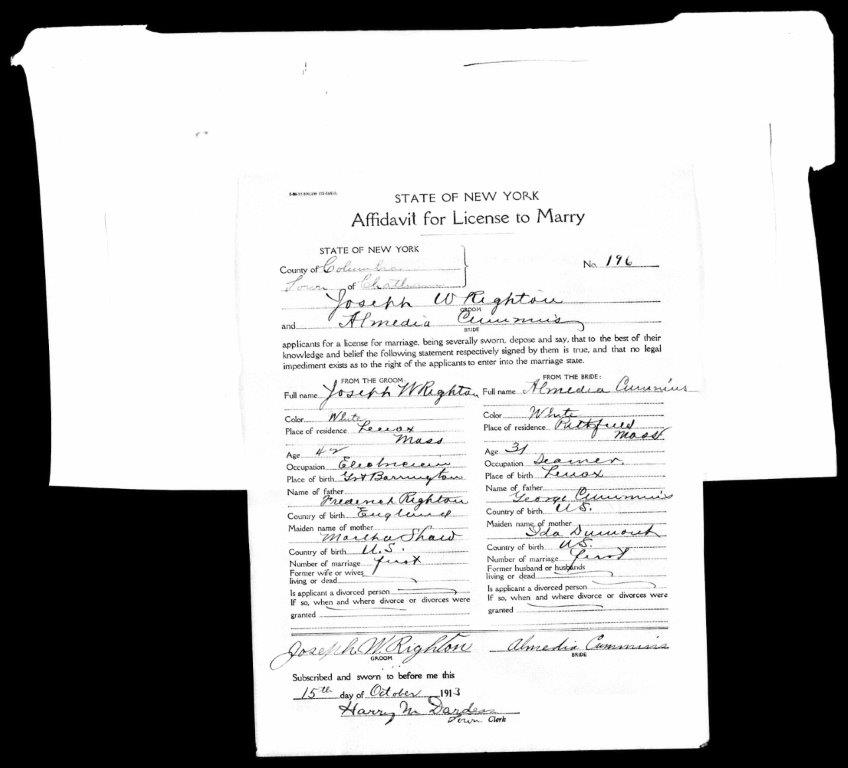 STATE OF NEW YORK
Affidavit for License to Marry
STATE OF NEW YORK
County of Columbia
No. 196
Town of Chatham
Joseph W Righton
GROOM
and Almedia Cummins
BRIDE
applicants for a license for marriage, being severally sworn, depose and say, that to the best of their
knowledge and belief the following statement respectively signed by them is true, and that no legal
impediment exists as to the right of the applicants to enter into the marriage state.
FROM THE GROOM:
Full name Joseph W Righton
Color White
Place of residence Lenox
Mass
Age 42
Occupation Electrician
Place of birth Gt Barrington
Name of father
Frederick Righton
Country of birth England
Maiden name of mother
Martha Shaw
Country of birth U.S.
Number of marriage first
Former wife or wives
living or dead
Is applicant a divorced person
If so, when and where divorce or divorces were
granted
FROM THE BRIDE:
Full name Almedia Cummins
Color White
Place of residence Pittsfield
Mass
Age 31
Occupation
Place of birth Lenox
Name of father
George Cummins
Country of birth U.S.
Maiden name of mother
Ida Dumont
Country of birth U.S.
Number of marriage first
Former husband or husbands
living or dead
Is applicant a divorced person
If so, when and where divorce or divorces were
granted
Joseph W. Righton
GROOM
Almedia Cummins
BRIDE
Subscribed and sworn to before me this
15th day of October 1913
Harry M
Town Clerk